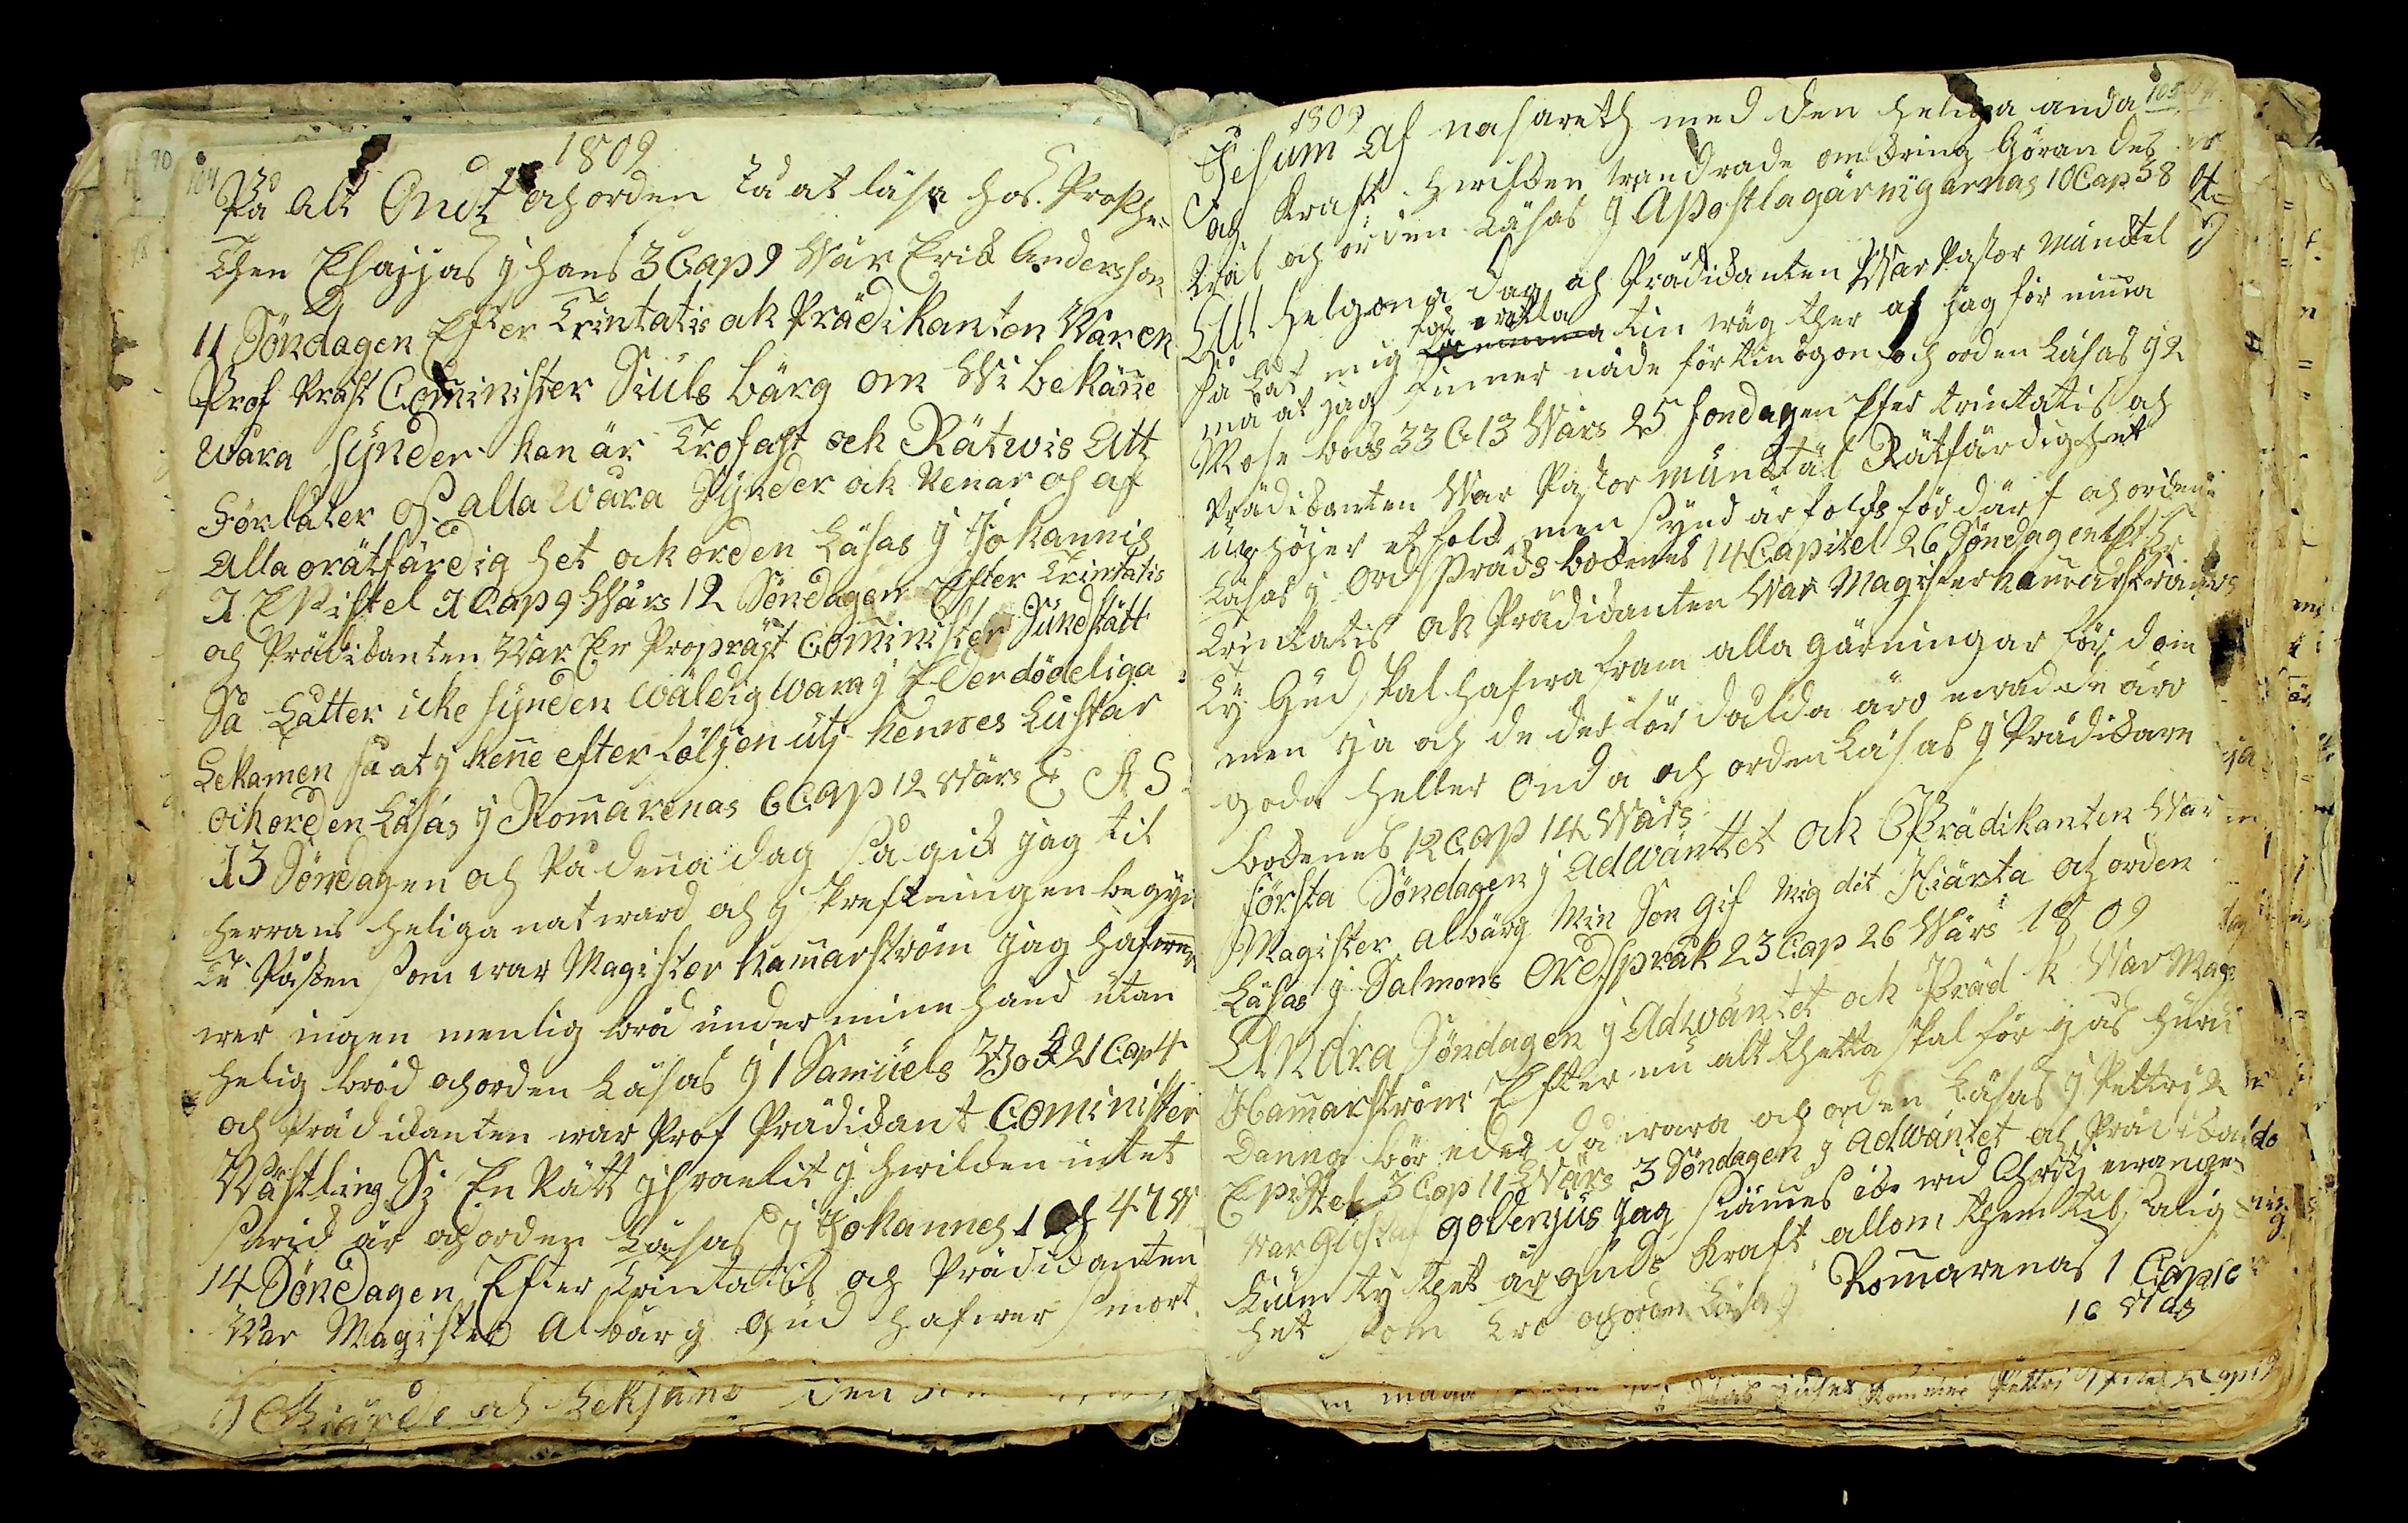 104
1809
På alt Ondt och orden Tå at läsa hos Prophe=
then Esajjas y hans 3 Cap 9 Wär Erik Andersson
11 Söndagen Efter Trintatis ok Prädikanten Var en
Prof Präst Cominister Siuls bärg om Wi bekäñe
wåra synder han är Trofast ock Rätwis Att
Förlåter oss alla wåra Synder ok Renar os af
Alla orätfärdig het ok orden Läsas y Johannis
1 Epistel 1 Cap 9 Wärs 12 Söndagen Efter Trintatis
och Prädikanten War En Propräst Cominister Sundstätt
Så Låtter icke synden wäldig wara y Eder dödeliga
Lekamen så at y heñe efter följen utj hennes Lustar
och orden Läsas y Romarenas 6 Cap 12 Wärs E A S
13 Söndagen och På deña dag så gick jag til
herrans heliga natward och y skreftningen begyn
te Pästen som war Magister Hamarström jag hafwer
wer ingen menlig bröd under mine hand utan
helig bröd och orden Läsas y 1 Samuels Bok 21 Cap 4
och Prädikanten war Prof Prädikant Cominister
Wästling Si En Rätt jsraelit y hwilken intet
swick är och orden Läsas y Johannes 1 47 W
14 Söndagen Efter Trintatis och Prädikanten
War Magister Albärg Gud hafwer smort
y Giärde och Leksand den
105
1809
Jesum Af nasareth med den heliga anda
og Kraft hwilken wandrade omkring Görandes
wäl och orden Läsas y Apostlagärnigarnas 10 Cap 38
Alt helgona dag och Prädikanten War Pastor Muncktel
så Lät mig få wetta tin wäg ther af jag för nima
må at jag finner nåde för tin ögon och orden Läsas y 2
Mose bok 33 C 13 Wärs 25 Söndagen Efter trintatis och
Prädikanten War Pastor muncktäl Rätfärdighet
uphöjer et folk men synd är folks förderf och orden
Läsas y Ordspråks bokenes 14 Capitel 26 Söndagen Efter
Trintatis ok Prädikanten War Magister hamarström
Ty Gud skal hafwa fram alla gärningar för dom
men ja och de der fördålda äro ewad de äro
goda heller Onda och orden Läsas y Prädikare
bokenes 12 Cap 14 Wärs
första Söndagen j Adwänttet ok Prädikanten War
Magister albärg Min Son Gif Mig dit Hiärta och orden
Läsas y Salmons Ordspråk 23 Cap 26 Wärs 1809
Andra Söndagen j Adwäntet ok Präd k War Mag
Hamarström Efter nu alt thetta skal för gås huru
Danna bör eder då wara och orden Läsas y Pettri 2
Epistel 3 Cap 11 Wärs 3 Söndagen y Adwäntet och Prädika
war Gustaf golenjus Jag skiämes icke wid Christj ewange
lium ty thet är guds Kraft allom them til salig
het som tro och orden Läsas y Romarenas 1 Capite
16 Wärs